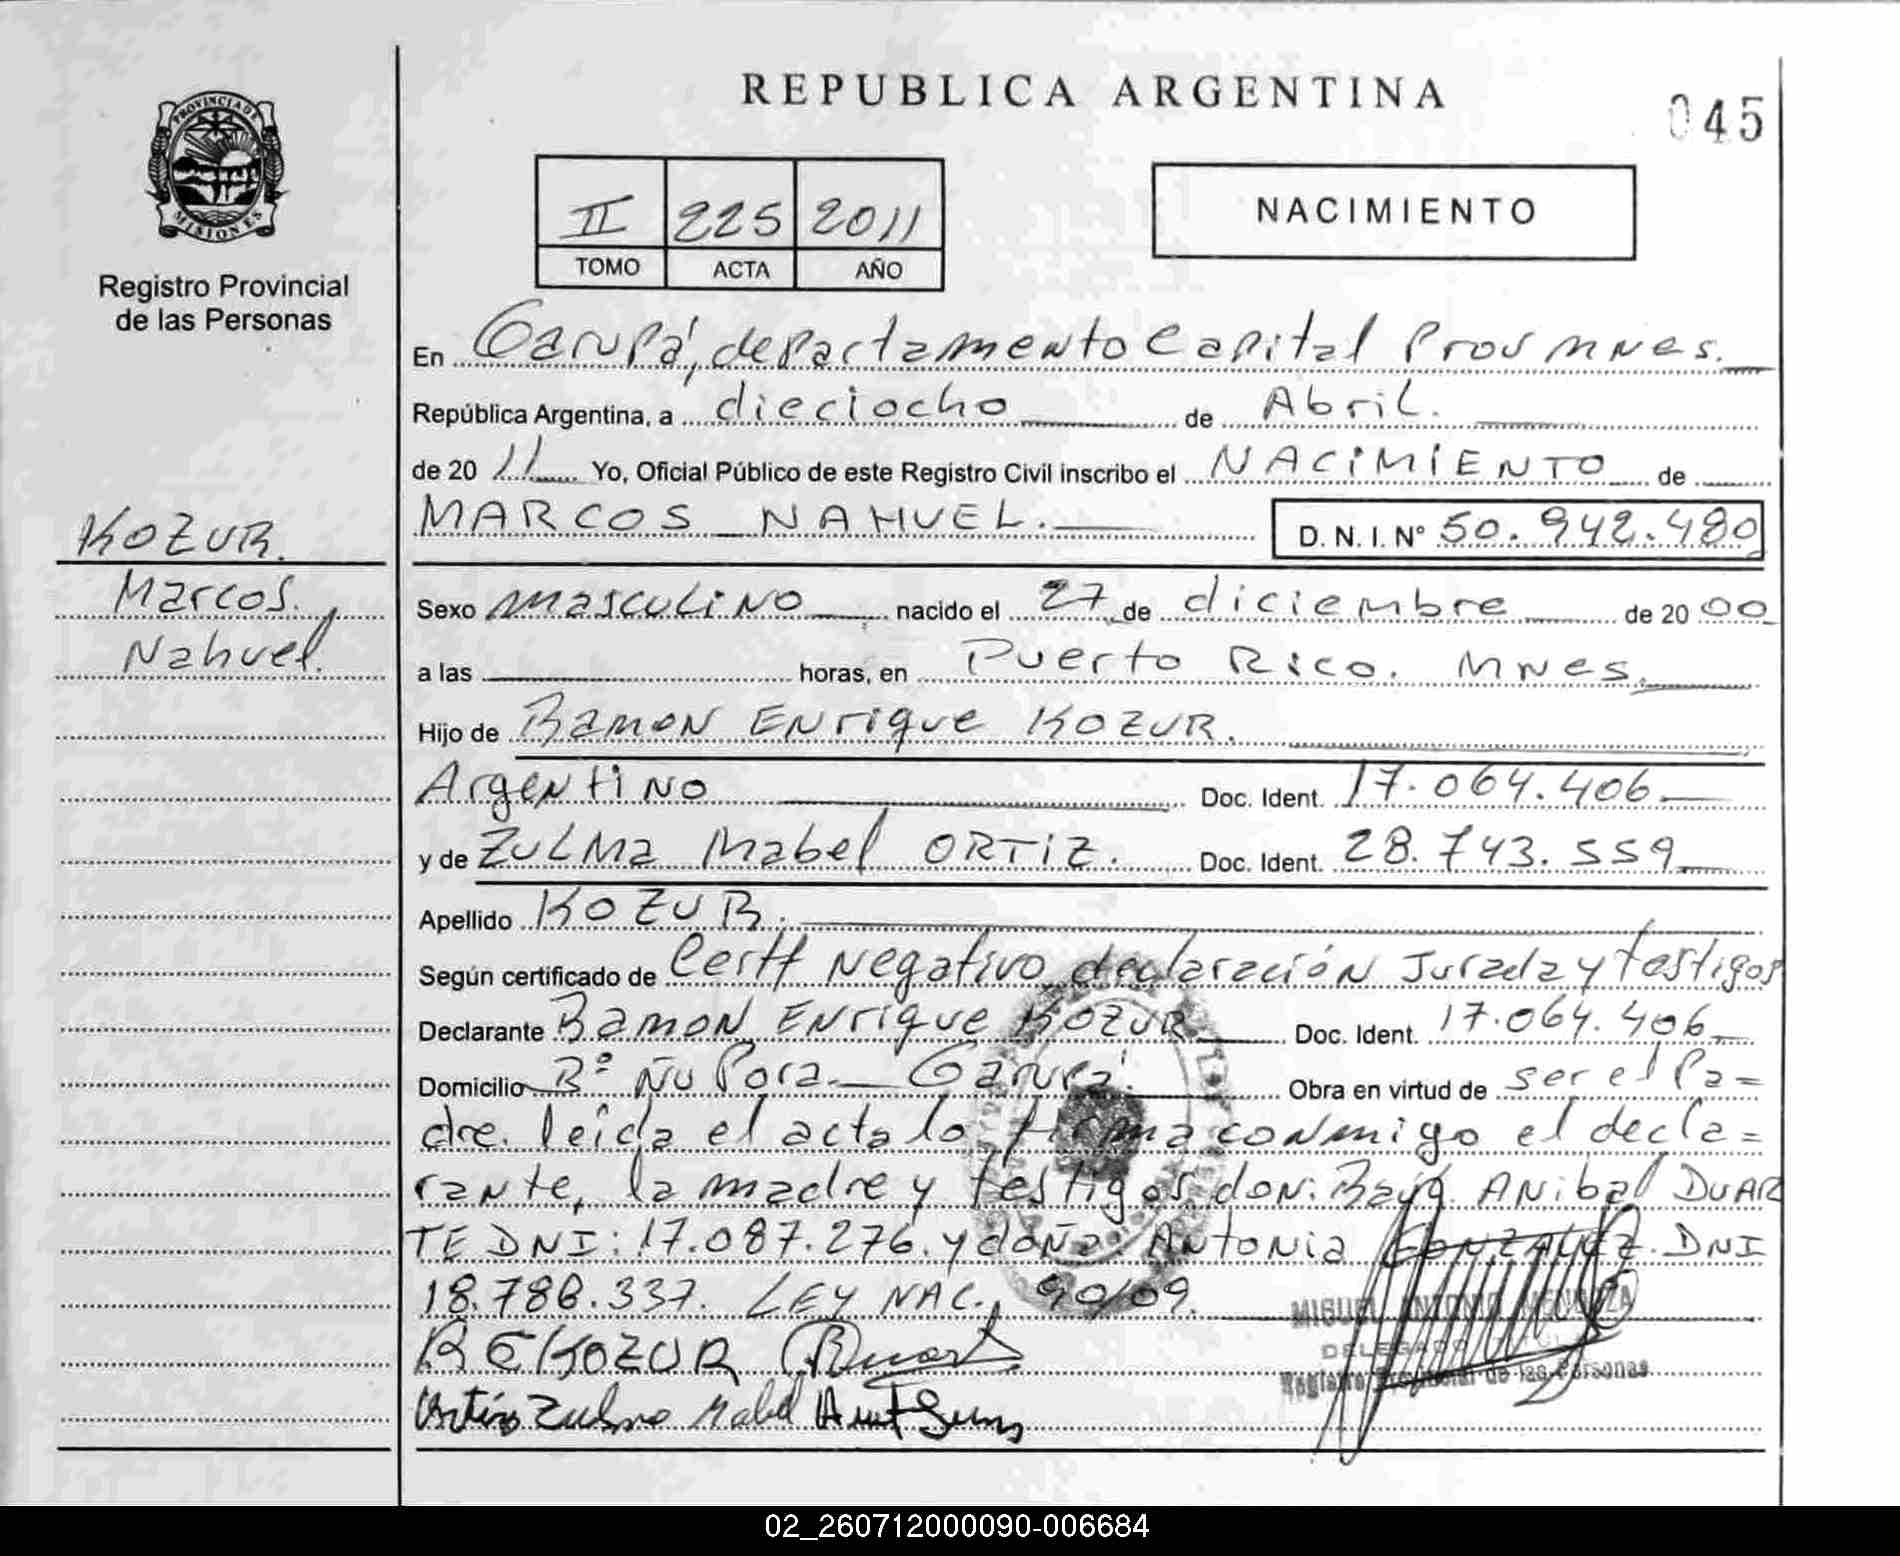 REPUBLICA ARGENTINA
045
PROVINCIA DE
MISIONES
Registro Provincial
de las Personas
II 225 2011
TOMO ACTA AÑO
NACIMIENTO
En Garupá, departamento Capital Prov Mnes.
República Argentina, a dieciocho de Abril.
de 20 11 Yo, Oficial Público de este Registro Civil inscribo el NACIMIENTO de
MARCOS NAHUEL. D. N. I. Nº 50.942.480
KOZUR.
Marcos
Nahuel.
Sexo masculino nacido el 27 de diciembre de 20 00
a las horas, en Puerto Rico. Mnes.
Hijo de Ramon Enrique KOZUR.
Argentino Doc. Ident. 17.064.406
y de Zulma Mabel ORTIZ. Doc. Ident. 28.743.559
Apellido KOZUR.
Según certificado de Certf negativo declaración Jurada y testigos
Declarante Ramon Enrique KOZUR Doc. Ident. 17.064.406
Domicilio Bº Ñu Pora - Garupá. Obra en virtud de ser el Pa=
dre. leida el acta lo firma conmigo el decla=
rante, la madre y testigos don: Anibal DUAR
TE DNI: 17.087.276. y doña: Antonia DNI
18.788.337. LEY NAC. 90/09.
MIGUEL ANTONIO MENDOZA
DELEGADO
Registro Provincial de las Personas
R E KOZUR
Ortiz Zulma Mabel
02_260712000090-006684